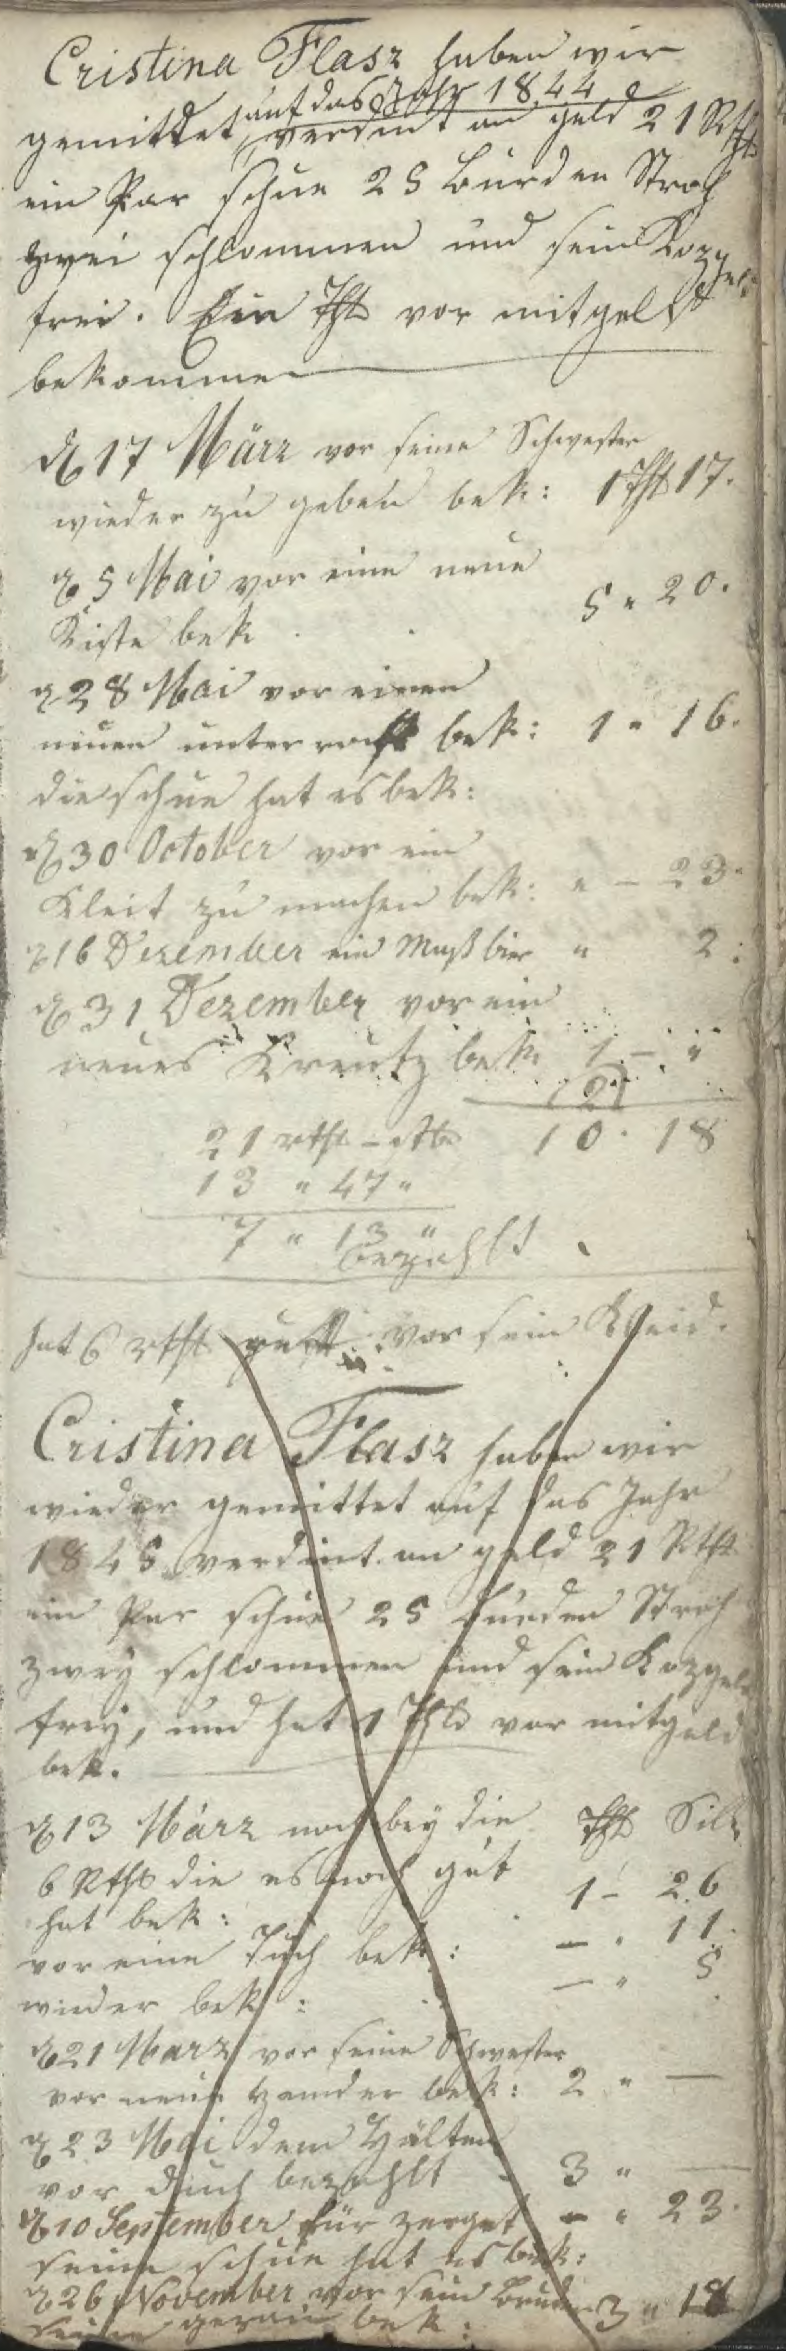 Cristina Flasz haben wir
auf das Jahr 1844
gemittet verdint an geld 21 Rth
ein Par schue 25 Burden Stroh
zwei schlommen und sein Kozgeld
frei. Ein Thl vor mitgeld
bekommen
d 17 März vor seine Schwester
wieder zu geben bek: 1 Thl 17.
d 5 Mai vor eine neue
Kiste bek 5 " 20.
d 28 Mai vor einen
neuen unterrock bek: 1 " 16.
die schue hat es bek:
d 30 October vor ein
Kleit zu machen bek: " - 23.
d 16 Dezember ein Maß bier " 2:
d 31 Dezember vor ein
neues Kreutz bek 1 - "
(2)
21 rth - 10 . 18
13 " 47 "
7 " 13 "
bezahlt
hat 6 rth gutt vor sein Kleid.
Cristina Flasz haben wir
wieder gemittet auf das Jahr
1845 verdint an geld 21 Rth
ein Par schue 25 burden Stroh
zwey schlommen und sein Kozgeld
frey, und hat 1 Thl vor mitgeld
bek.
d 13 März noch bey die Thl Silb
6 Rthl die es noch gut
hat bek: 1 - 26
vor eine Tuch bek: - . 11.
wieder bek: - " 5
d 21 März vor seine Schwester
vor neue hemder bek: 2 " -
d 23 Mai dem Hälten
vor duch bezahlt - 3 " -
d 10 September für zerget - " 23.
seine schue hat es bek:
d 26 November vor sein bruder 3 " 18
bek: